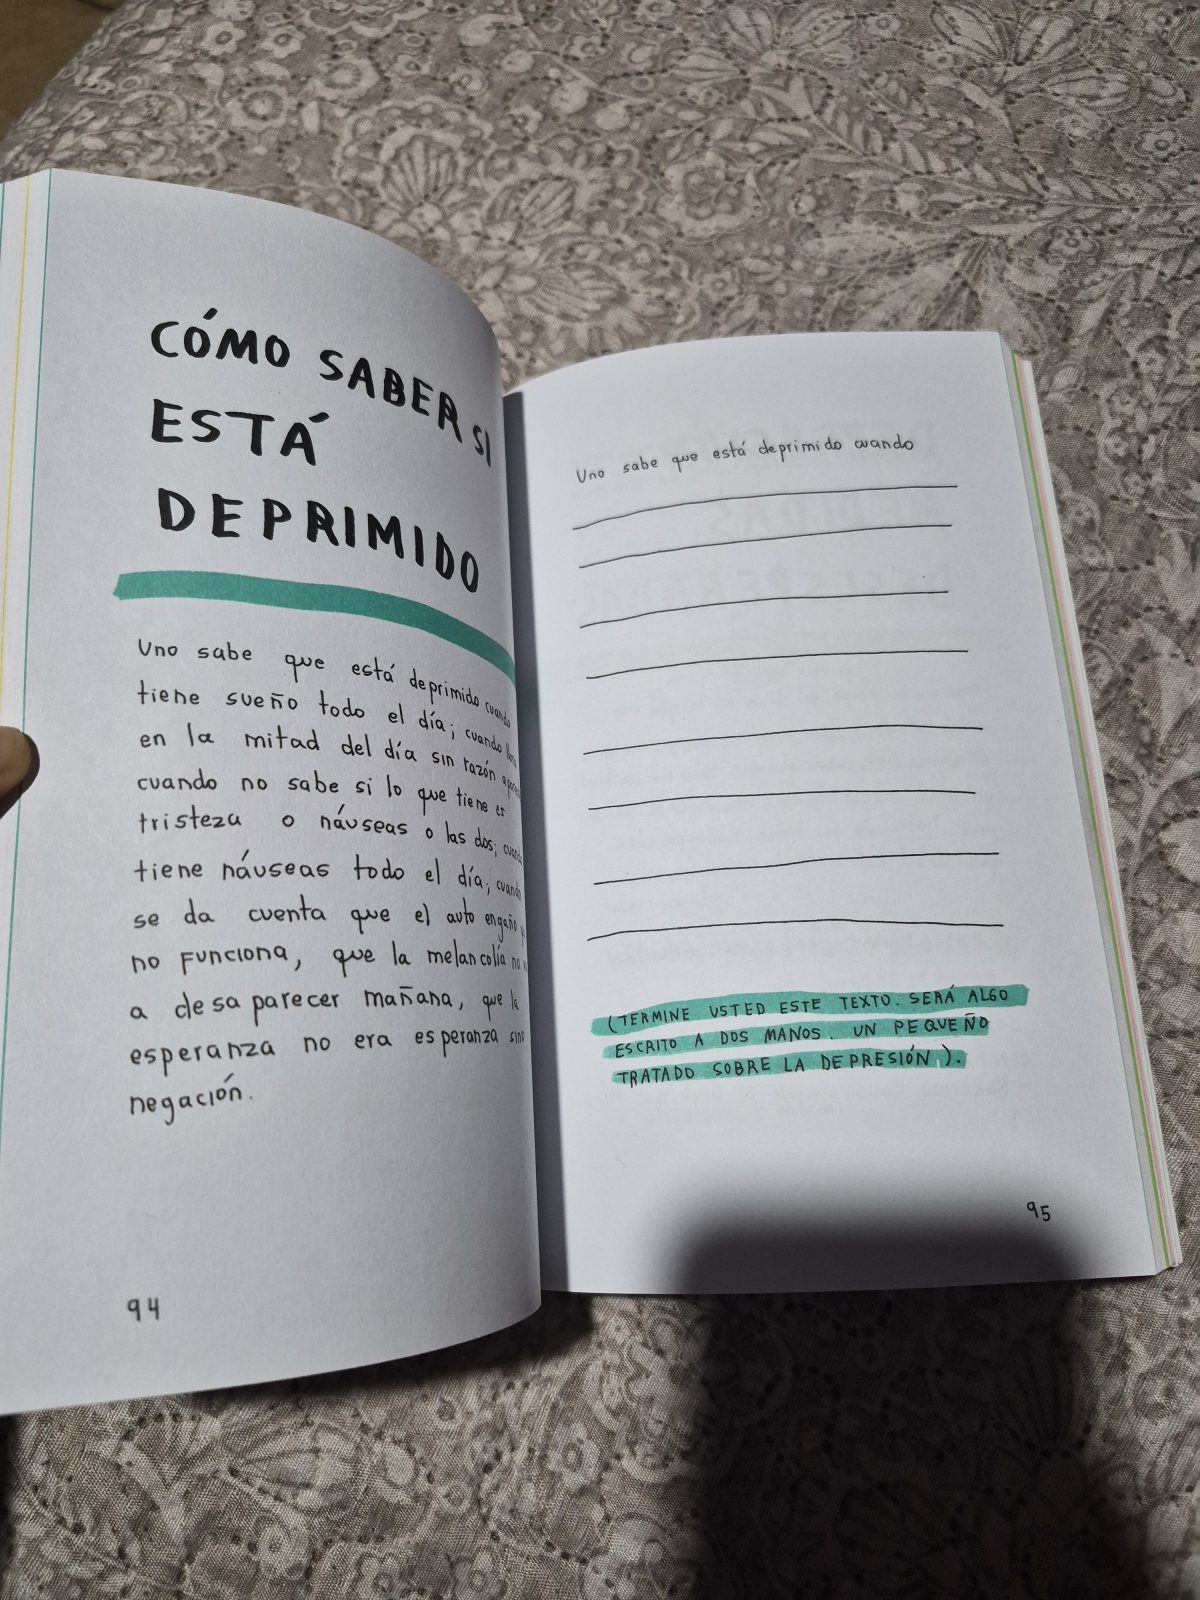 CÓMO SABER SI
ESTÁ
DEPRIMIDO
Uno sabe que está deprimido cuando
tiene sueño todo el día; cuando
en la mitad del día sin razón
cuando no sabe si lo que tiene es
tristeza o náuseas o las dos; cuando
tiene náuseas todo el día; cuando
se da cuenta que el auto engaño
no funciona, que la melancolía no
a desaparecer mañana, que la
esperanza no era esperanza sino
negación.
94
Uno sabe que está deprimido cuando
(TERMINE USTED ESTE TEXTO. SERÁ ALGO
ESCRITO A DOS MANOS. UN PEQUEÑO
TRATADO SOBRE LA DEPRESIÓN.).
95